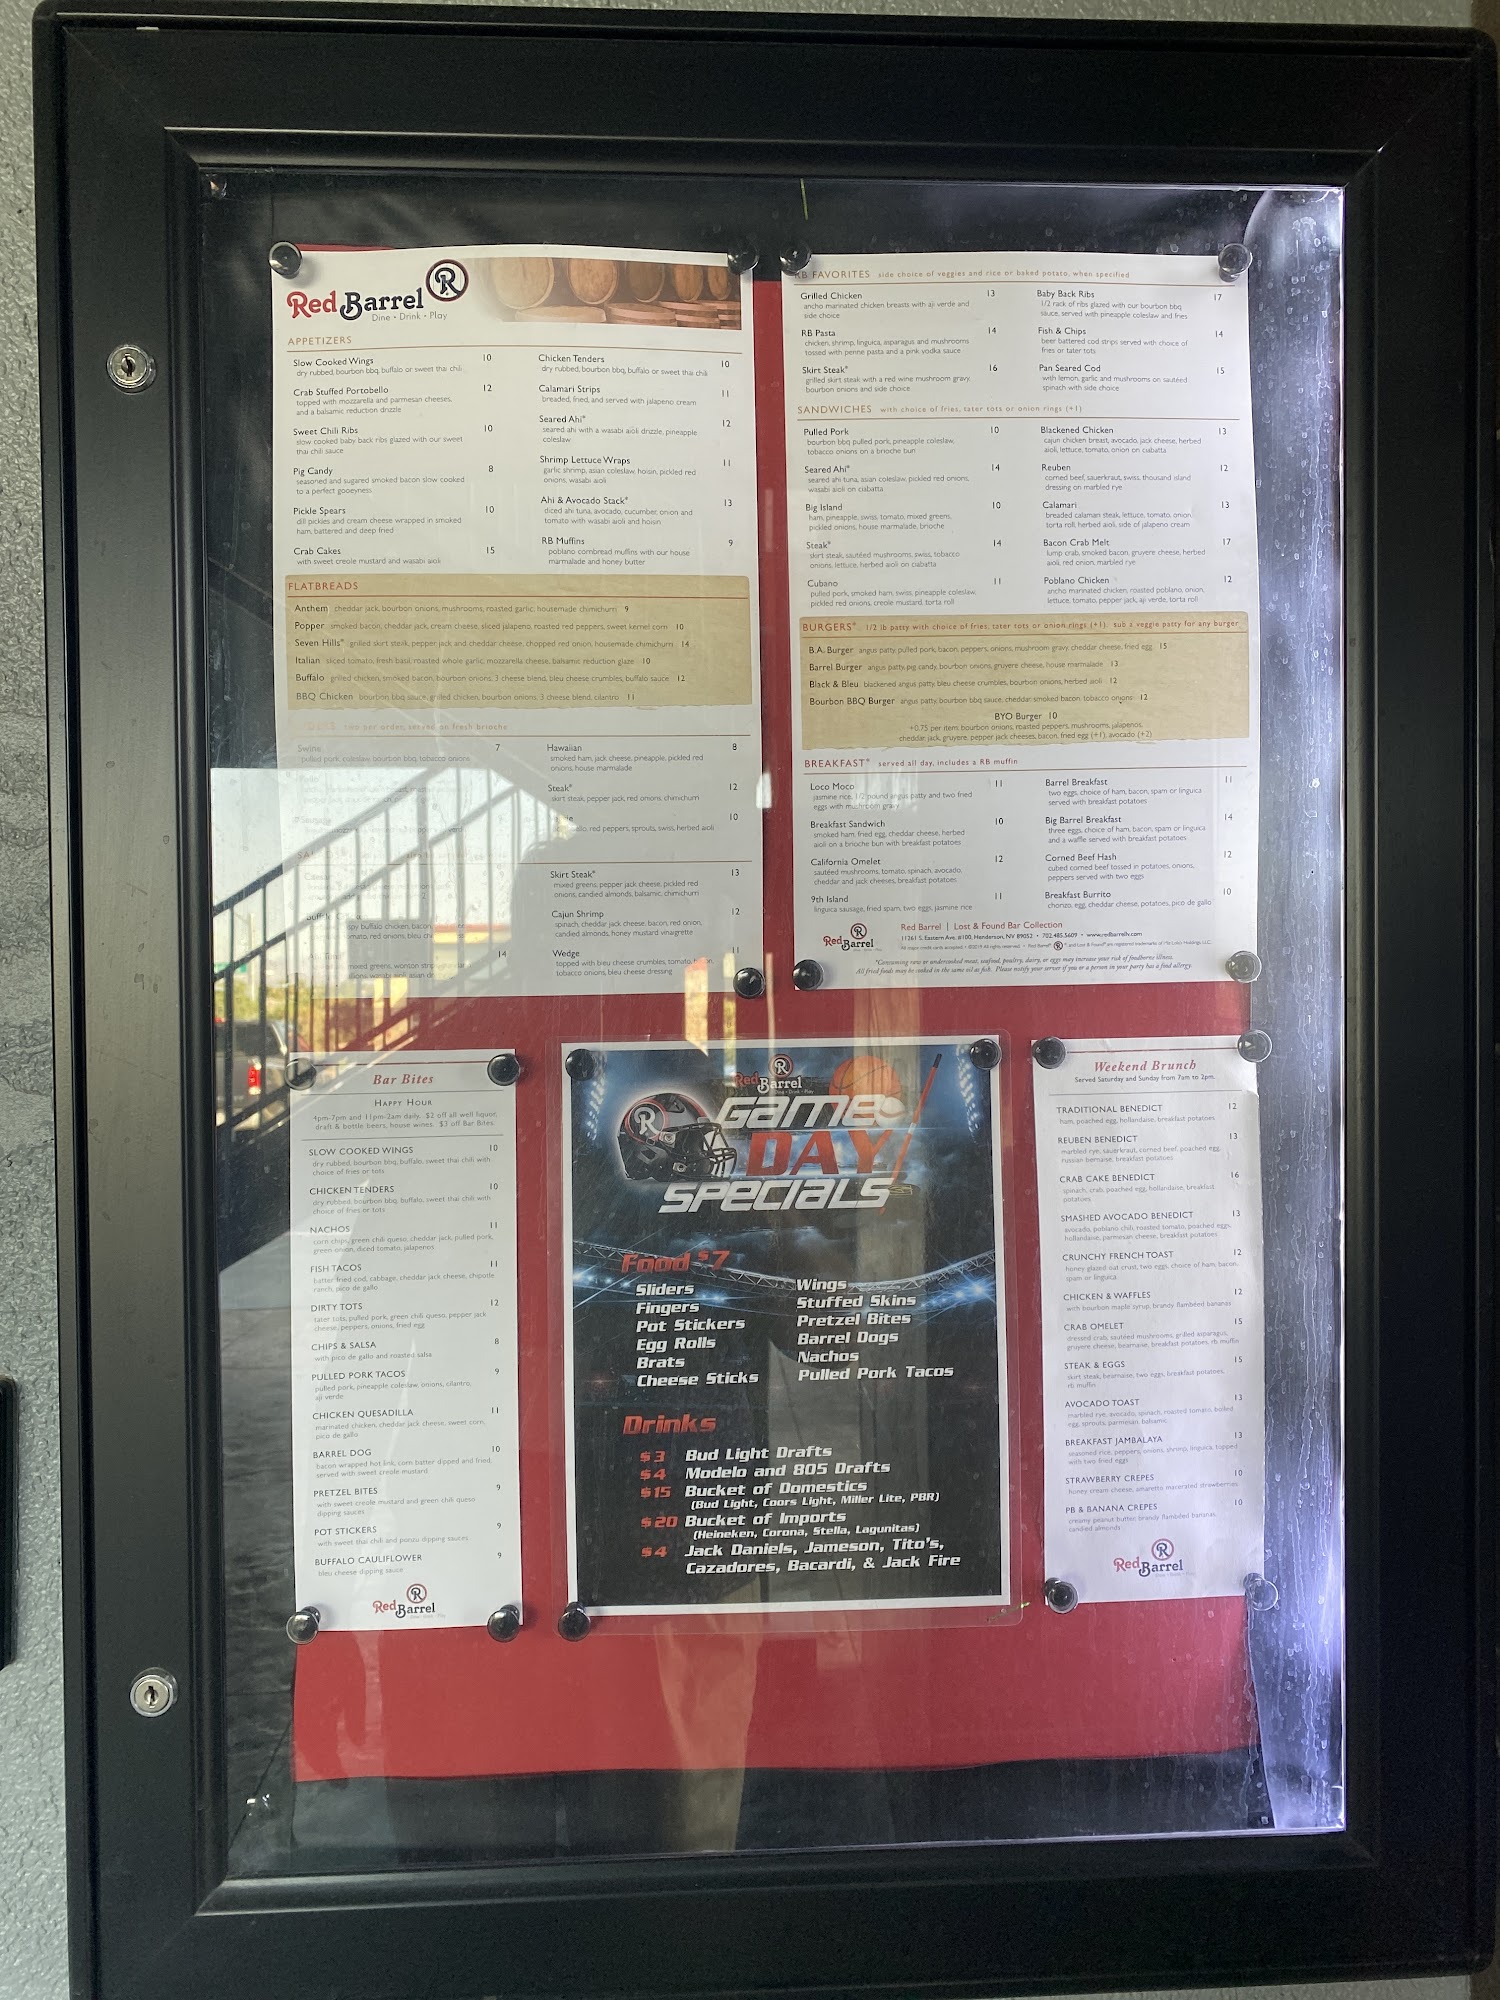 Red Barrel
Dine • Drink • Play
APPETIZERS
Slow Cooked Wings 10
dry rubbed, bourbon bbq, buffalo or sweet thai chili
Crab Stuffed Portobello 12
topped with mozzarella and parmesan cheeses,
and a balsamic reduction drizzle
Sweet Chili Ribs 10
slow cooked baby back ribs glazed with our sweet
thai chili sauce
Pig Candy 8
seasoned and sugared smoked bacon slow cooked
to a perfect gooeyness
Pickle Spears 10
dill pickles and cream cheese wrapped in smoked
ham, battered and deep fried
Crab Cakes 15
with sweet creole mustard and wasabi aioli
Chicken Tenders 10
dry rubbed, bourbon bbq, buffalo or sweet thai chili
Calamari Strips 11
breaded, fried, and served with jalapeno cream
Seared Ahi* 12
seared ahi with a wasabi aioli drizzle, pineapple
coleslaw
Shrimp Lettuce Wraps 11
garlic shrimp, asian coleslaw, hoisin, pickled red
onions, wasabi aioli
Ahi & Avocado Stack* 13
diced ahi tuna, avocado, cucumber, onion and
tomato with wasabi aioli and hoisin
RB Muffins 9
poblano cornbread muffins with our house
marmalade and honey butter
FLATBREADS
Anthem cheddar jack, bourbon onions, mushrooms, roasted garlic, housemade chimichurri 9
Popper smoked bacon, cheddar jack, cream cheese, sliced jalapeno, roasted red peppers, sweet kernel corn 10
Seven Hills* grilled skirt steak, pepper jack and cheddar cheese, chopped red onion, housemade chimichurri 14
Italian sliced tomato, fresh basil, roasted whole garlic, mozzarella cheese, balsamic reduction glaze 10
Buffalo grilled chicken, smoked bacon, bourbon onions, 3 cheese blend, bleu cheese crumbles, buffalo sauce 12
BBQ Chicken bourbon bbq sauce, grilled chicken, bourbon onions, 3 cheese blend, cilantro 11
two per order, served on fresh brioche
Swine 7
pulled pork, coleslaw, bourbon bbq, tobacco onions
Hawaiian 8
smoked ham, jack cheese, pineapple, pickled red
onions, house marmalade
Steak* 12
skirt steak, pepper jack, red onions, chimichurri
10
red peppers, sprouts, swiss, herbed aioli
Skirt Steak* 13
mixed greens, pepper jack cheese, pickled red
onions, candied almonds, balsamic, chimichurri
Cajun Shrimp 12
spinach, cheddar jack cheese, bacon, red onion,
candied almonds, honey mustard vinaigrette
Wedge 11
topped with bleu cheese crumbles, tomato,
tobacco onions, bleu cheese dressing
buffalo chicken, bacon,
red onions, bleu
14
mixed greens, wonton
RB FAVORITES side choice of veggies and rice or baked potato, when specified
Grilled Chicken 13
ancho marinated chicken breasts with aji verde and
side choice
RB Pasta 14
chicken, shrimp, linguica, asparagus and mushrooms
tossed with penne pasta and a pink vodka sauce
Skirt Steak* 16
grilled skirt steak with a red wine mushroom gravy,
bourbon onions and side choice
Baby Back Ribs 17
1/2 rack of ribs glazed with our bourbon bbq
sauce, served with pineapple coleslaw and fries
Fish & Chips 14
beer battered cod strips served with choice of
fries or tater tots
Pan Seared Cod 15
with lemon, garlic and mushrooms on sautéed
spinach with side choice
SANDWICHES with choice of fries, tater tots or onion rings (+1)
Pulled Pork 10
bourbon bbq pulled pork, pineapple coleslaw,
tobacco onions on a brioche bun
Seared Ahi* 14
seared ahi tuna, asian coleslaw, pickled red onions,
wasabi aioli on ciabatta
Big Island 10
ham, pineapple, swiss, tomato, mixed greens,
pickled onions, house marmalade, brioche
Steak* 14
skirt steak, sautéed mushrooms, swiss, tobacco
onions, lettuce, herbed aioli on ciabatta
Cubano 11
pulled pork, smoked ham, swiss, pineapple coleslaw,
pickled red onions, creole mustard, torta roll
Blackened Chicken 13
cajun chicken breast, avocado, jack cheese, herbed
aioli, lettuce, tomato, onion on ciabatta
Reuben 12
corned beef, sauerkraut, swiss, thousand island
dressing on marbled rye
Calamari 13
breaded calamari steak, lettuce, tomato, onion,
torta roll, herbed aioli, side of jalapeno cream
Bacon Crab Melt 17
lump crab, smoked bacon, gruyere cheese, herbed
aioli, red onion, marbled rye
Poblano Chicken 12
ancho marinated chicken, roasted poblano, onion,
lettuce, tomato, pepper jack, aji verde, torta roll
BURGERS* 1/2 lb patty with choice of fries, tater tots or onion rings (+1) sub a veggie patty for any burger
B.A. Burger angus patty, pulled pork, bacon, peppers, onions, mushroom gravy, cheddar cheese, fried egg 15
Barrel Burger angus patty, pig candy, bourbon onions, gruyere cheese, house marmalade 13
Black & Bleu blackened angus patty, bleu cheese crumbles, bourbon onions, herbed aioli 12
Bourbon BBQ Burger angus patty, bourbon bbq sauce, cheddar, smoked bacon, tobacco onions 12
BYO Burger 10
+0.75 per item: bourbon onions, roasted peppers, mushrooms, jalapenos,
cheddar jack, gruyere, pepper jack cheeses, bacon, fried egg (+1), avocado (+2)
BREAKFAST* served all day, includes a RB muffin
Loco Moco 11
jasmine rice, 1/2 pound angus patty and two fried
eggs with mushroom gravy
Breakfast Sandwich 10
smoked ham, fried egg, cheddar cheese, herbed
aioli on a brioche bun with breakfast potatoes
California Omelet 12
sautéed mushrooms, tomato, spinach, avocado,
cheddar and jack cheeses, breakfast potatoes
9th Island 11
linguica sausage, fried spam, two eggs, jasmine rice
Barrel Breakfast 11
two eggs, choice of ham, bacon, spam or linguica
served with breakfast potatoes
Big Barrel Breakfast 14
three eggs, choice of ham, bacon, spam or linguica
and a waffle served with breakfast potatoes
Corned Beef Hash 12
cubed corned beef tossed in potatoes, onions,
peppers served with two eggs
Breakfast Burrito 10
chorizo, egg, cheddar cheese, potatoes, pico de gallo
Red Barrel
Red Barrel | Lost & Found Bar Collection
11261 S. Eastern Ave. #100, Henderson, NV 89052 • 702.485.5609 • www.redbarrellv.com
*Consuming raw or undercooked meat, seafood, poultry, dairy, or eggs may increase your risk of foodborne illness.
All fried foods may be cooked in the same oil as fish. Please notify your server if you or a person in your party has a food allergy.
Bar Bites
HAPPY HOUR
4pm-7pm and 11pm-2am daily. $2 off all well liquor,
draft & bottle beers, house wines. $3 off Bar Bites.
SLOW COOKED WINGS 10
dry rubbed, bourbon bbq, buffalo, sweet thai chili with
choice of fries or tots
CHICKEN TENDERS 10
dry rubbed, bourbon bbq, buffalo, sweet thai chili with
choice of fries or tots
NACHOS 11
corn chips, green chili queso, cheddar jack, pulled pork,
green onion, diced tomato, jalapenos
FISH TACOS 11
batter fried cod, cabbage, cheddar jack cheese, chipotle
ranch, pico de gallo
DIRTY TOTS 12
tater tots, pulled pork, green chili queso, pepper jack
cheese, peppers, onions, fried egg
CHIPS & SALSA 8
with pico de gallo and roasted salsa
PULLED PORK TACOS 9
pulled pork, pineapple coleslaw, onions, cilantro,
aji verde
CHICKEN QUESADILLA 11
marinated chicken, cheddar jack cheese, sweet corn,
pico de gallo
BARREL DOG 10
bacon wrapped hot link, corn batter dipped and fried,
served with sweet creole mustard
PRETZEL BITES 9
with sweet creole mustard and green chili queso
dipping sauces
POT STICKERS 9
with sweet thai chili and ponzu dipping sauces
BUFFALO CAULIFLOWER 9
bleu cheese dipping sauce
Red Barrel
Red Barrel
GAME
DAY
SPECIALS
Food $7
Sliders
Fingers
Pot Stickers
Egg Rolls
Brats
Cheese Sticks
Wings
Stuffed Skins
Pretzel Bites
Barrel Dogs
Nachos
Pulled Pork Tacos
Drinks
$3 Bud Light Drafts
$4 Modelo and 805 Drafts
$15 Bucket of Domestics
(Bud Light, Coors Light, Miller Lite, PBR)
$20 Bucket of Imports
(Heineken, Corona, Stella, Lagunitas)
$4 Jack Daniels, Jameson, Tito's,
Cazadores, Bacardi, & Jack Fire
Weekend Brunch
Served Saturday and Sunday from 7am to 2pm.
TRADITIONAL BENEDICT 12
ham, poached egg, hollandaise, breakfast potatoes
REUBEN BENEDICT 13
marbled rye, sauerkraut, corned beef, poached egg,
russian bernaise, breakfast potatoes
CRAB CAKE BENEDICT 16
spinach, crab, poached egg, hollandaise, breakfast
potatoes
SMASHED AVOCADO BENEDICT 13
avocado, poblano chili, roasted tomato, poached eggs,
hollandaise, parmesan cheese, breakfast potatoes
CRUNCHY FRENCH TOAST 12
honey glazed oat crust, two eggs, choice of ham, bacon,
spam or linguica
CHICKEN & WAFFLES 12
with bourbon maple syrup, brandy flambéed bananas
CRAB OMELET 15
dressed crab, sautéed mushrooms, grilled asparagus,
gruyere cheese, bearnaise, breakfast potatoes, rb muffin
STEAK & EGGS 15
skirt steak, bearnaise, two eggs, breakfast potatoes,
rb muffin
AVOCADO TOAST 13
marbled rye, avocado, spinach, roasted tomato, boiled
egg, sprouts, parmesan, balsamic
BREAKFAST JAMBALAYA 13
seasoned rice, peppers, onions, shrimp, linguica, topped
with two fried eggs
STRAWBERRY CREPES 10
honey cream cheese, amaretto macerated strawberries
PB & BANANA CREPES 10
creamy peanut butter, brandy flambéed bananas,
candied almonds
Red Barrel